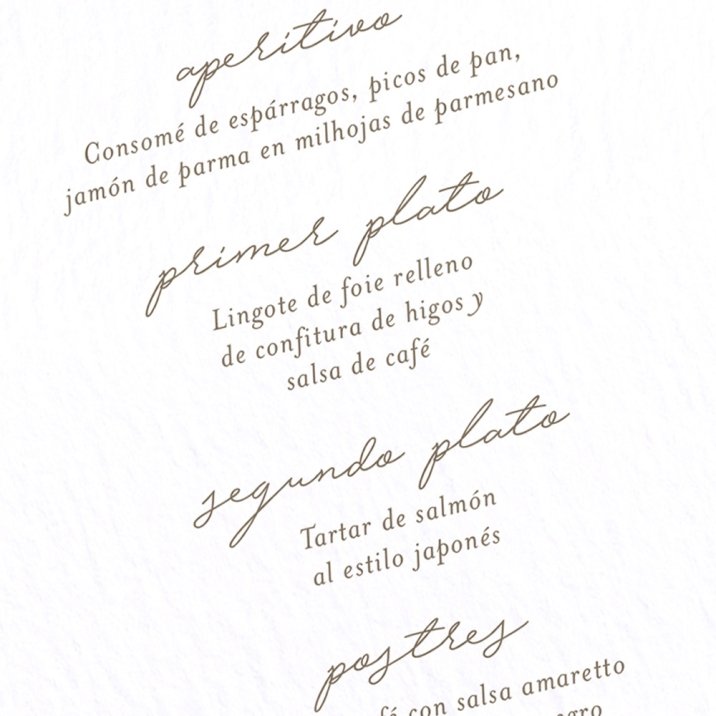 aperitivo
Consomé de espárragos, picos de pan,
jamón de parma en milhojas de parmesano
primer plato
Lingote de foie relleno
de confitura de higos y
salsa de café
segundo plato
Tartar de salmón
al estilo japonés
postres
con salsa amaretto